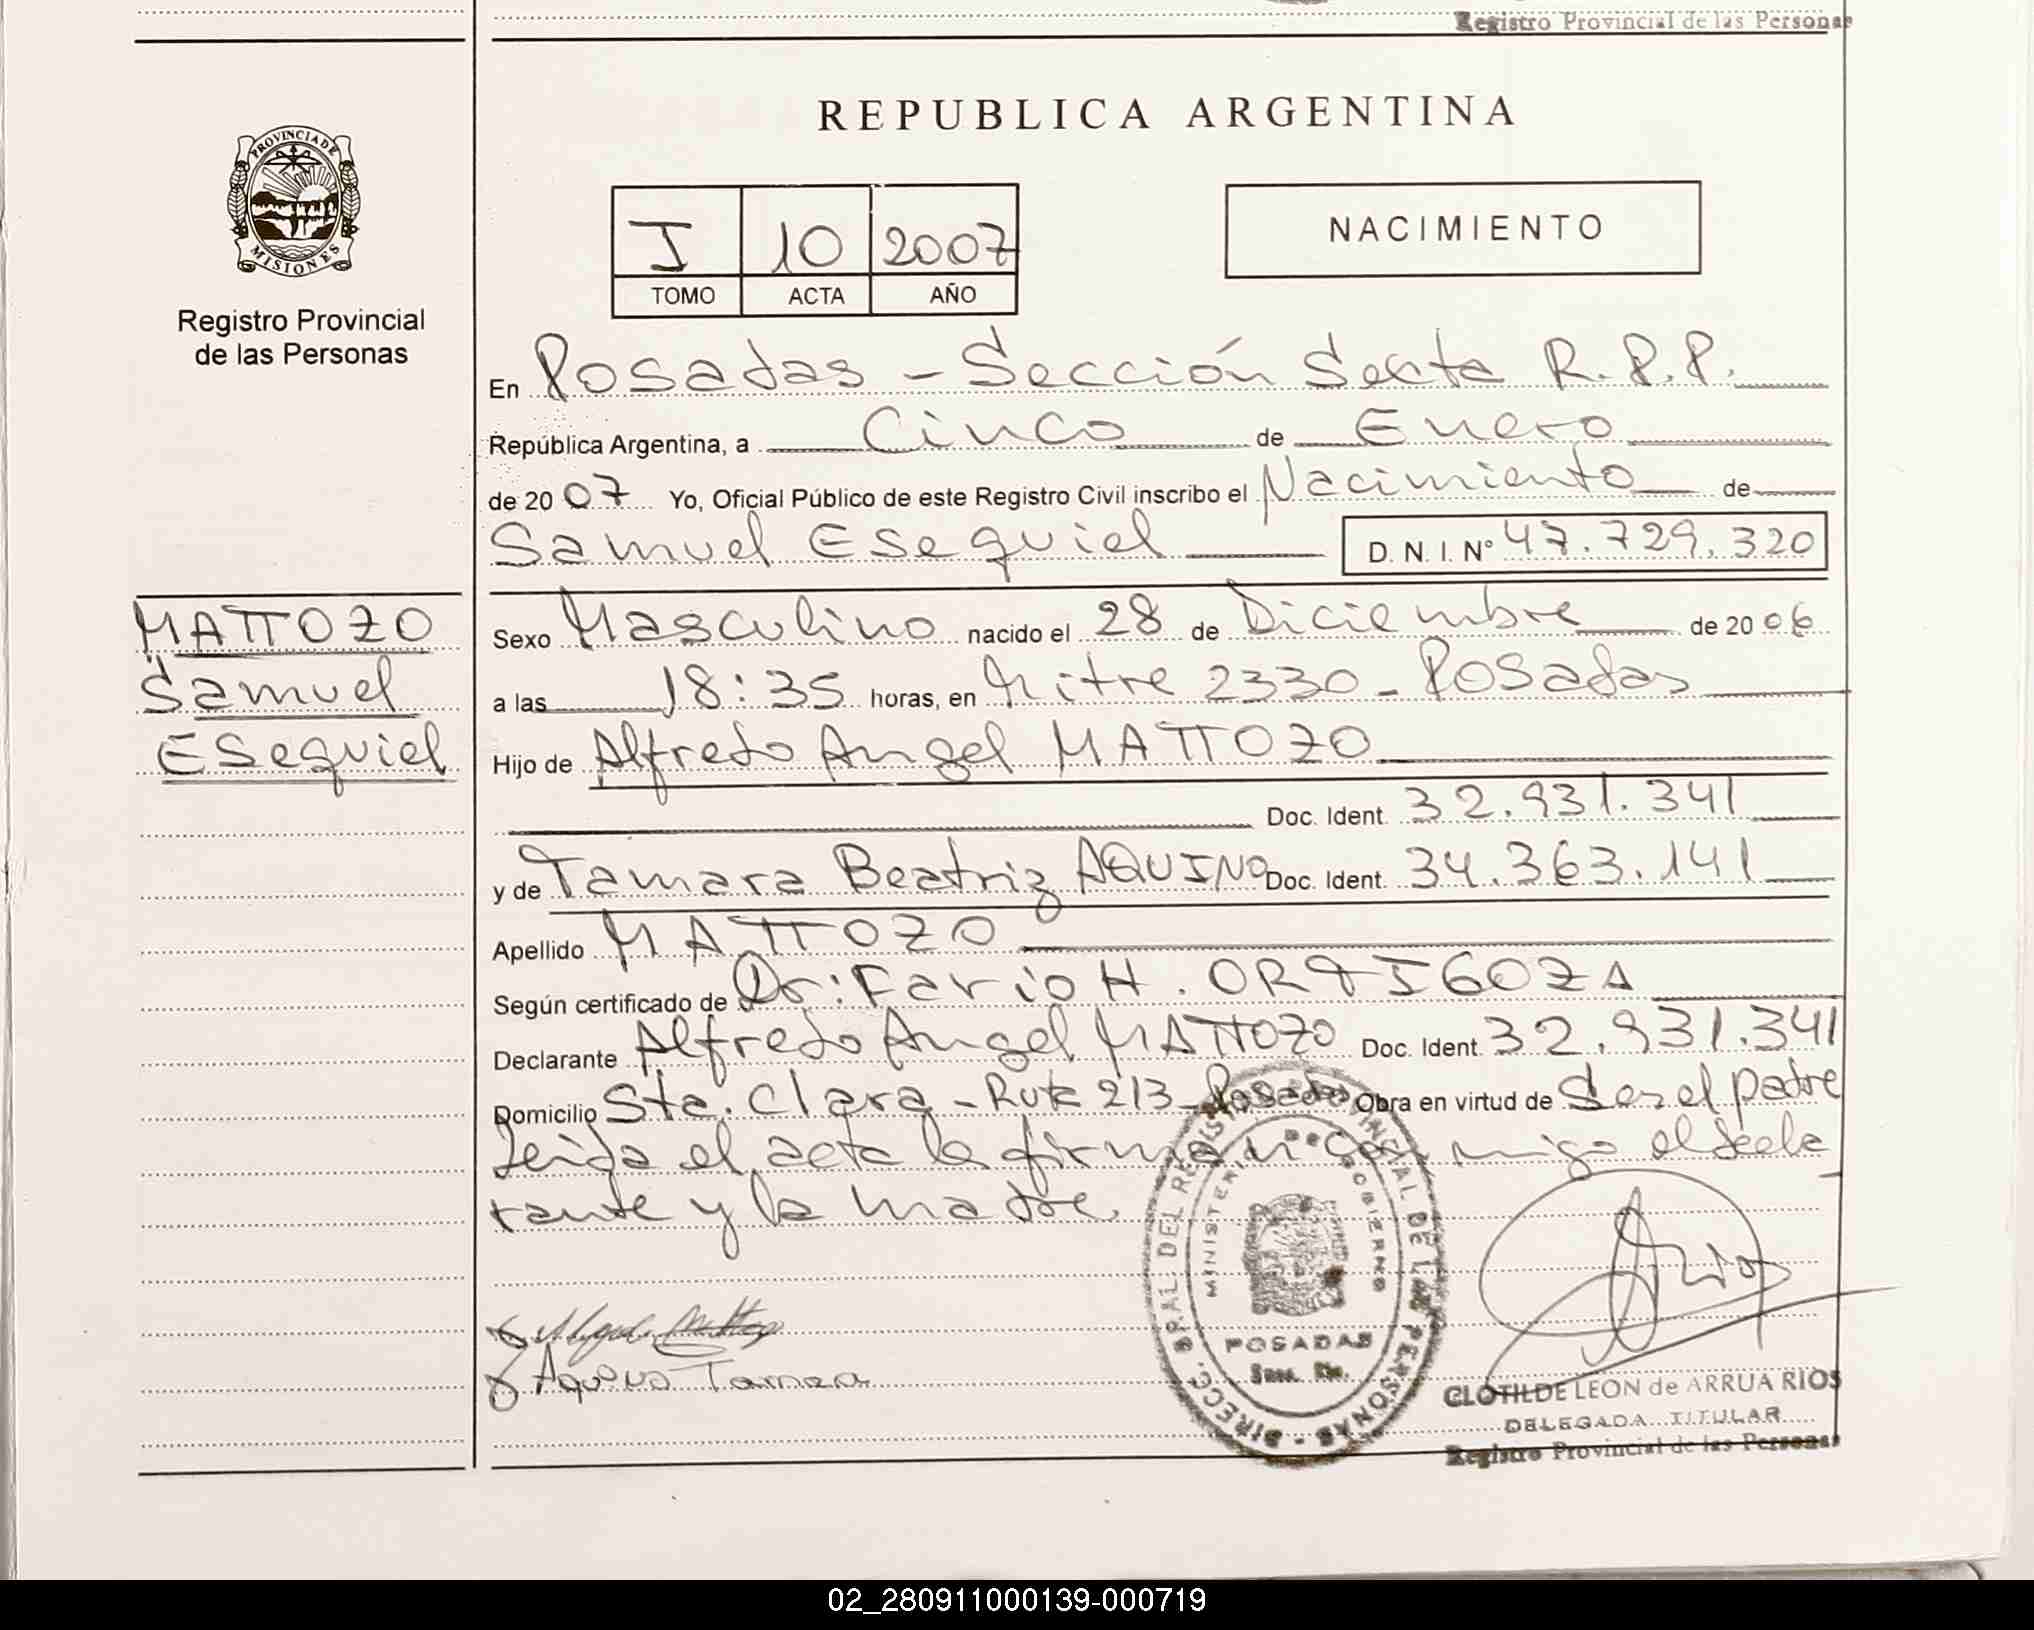 Registro Provincial de las Personas
PROVINCIA DE
MISIONES
Registro Provincial
de las Personas
REPUBLICA ARGENTINA
I 10 2007
TOMO ACTA AÑO
NACIMIENTO
En Posadas - Sección Sexta R.P.P.
República Argentina, a Cinco de Enero
de 2007 Yo, Oficial Público de este Registro Civil inscribo el Nacimiento de
Samuel Esequiel D.N.I. N° 47.729.320
MATTOZO
Samuel
Esequiel
Sexo Masculino nacido el 28 de Diciembre de 2006
a las 18:35 horas, en Mitre 2330 - Posadas
Hijo de Alfredo Angel MATTOZO
Doc. Ident. 32.931.341
y de Tamara Beatriz AQUINO Doc. Ident. 34.363.141
Apellido MATTOZO
Según certificado de Dr: Fario H. ORTIGOZA
Declarante Alfredo Angel MATTOZO Doc. Ident. 32.931.341
Domicilio Sta. Clara - Ruta 213 - Posadas Obra en virtud de Ser el padre
Leida el acta la firman conmigo el decla
rante y la madre.
Aquino Tamara
DIRECC. GRAL. DEL REGISTRO PROVINCIAL DE LAS PERSONAS
MINISTERIO DE GOBIERNO
POSADAS
CLOTILDE LEON de ARRUA RIOS
DELEGADA TITULAR
Registro Provincial de las Personas
02_280911000139-000719